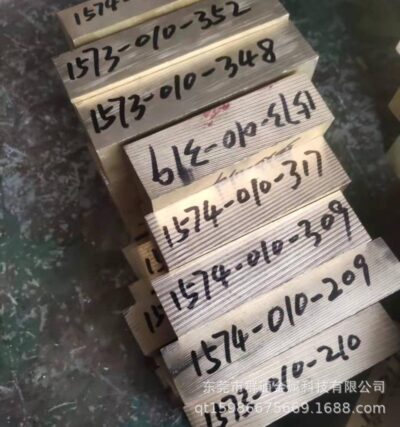 1574
1573-010-352
1573-010-348
1573-010-319
1574-010-317
1574-010-309
1574-010-209
1573-010-210
qt15986675669.1688.com